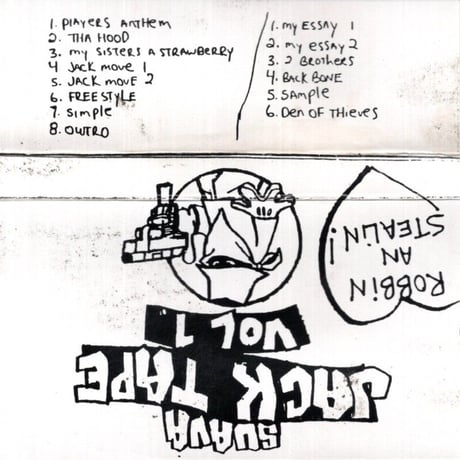 1. PLAYERS ANTHEM
2. THA HOOD
3. MY SISTERS A STRAWBERRY
4 JACK MOVE 1
5. JACK MOVE 2
6. FREESTYLE
7. SIMPLE
8. OUTRO
1. MY ESSAY 1
2. MY ESSAY 2
3. 2 BROTHERS
4. BACK BONE
5. SAMPLE
6. Den OF THIEVES
SUAVA
JACK TAPE
VOL 1
ROBBiN
AN
STEALiN!